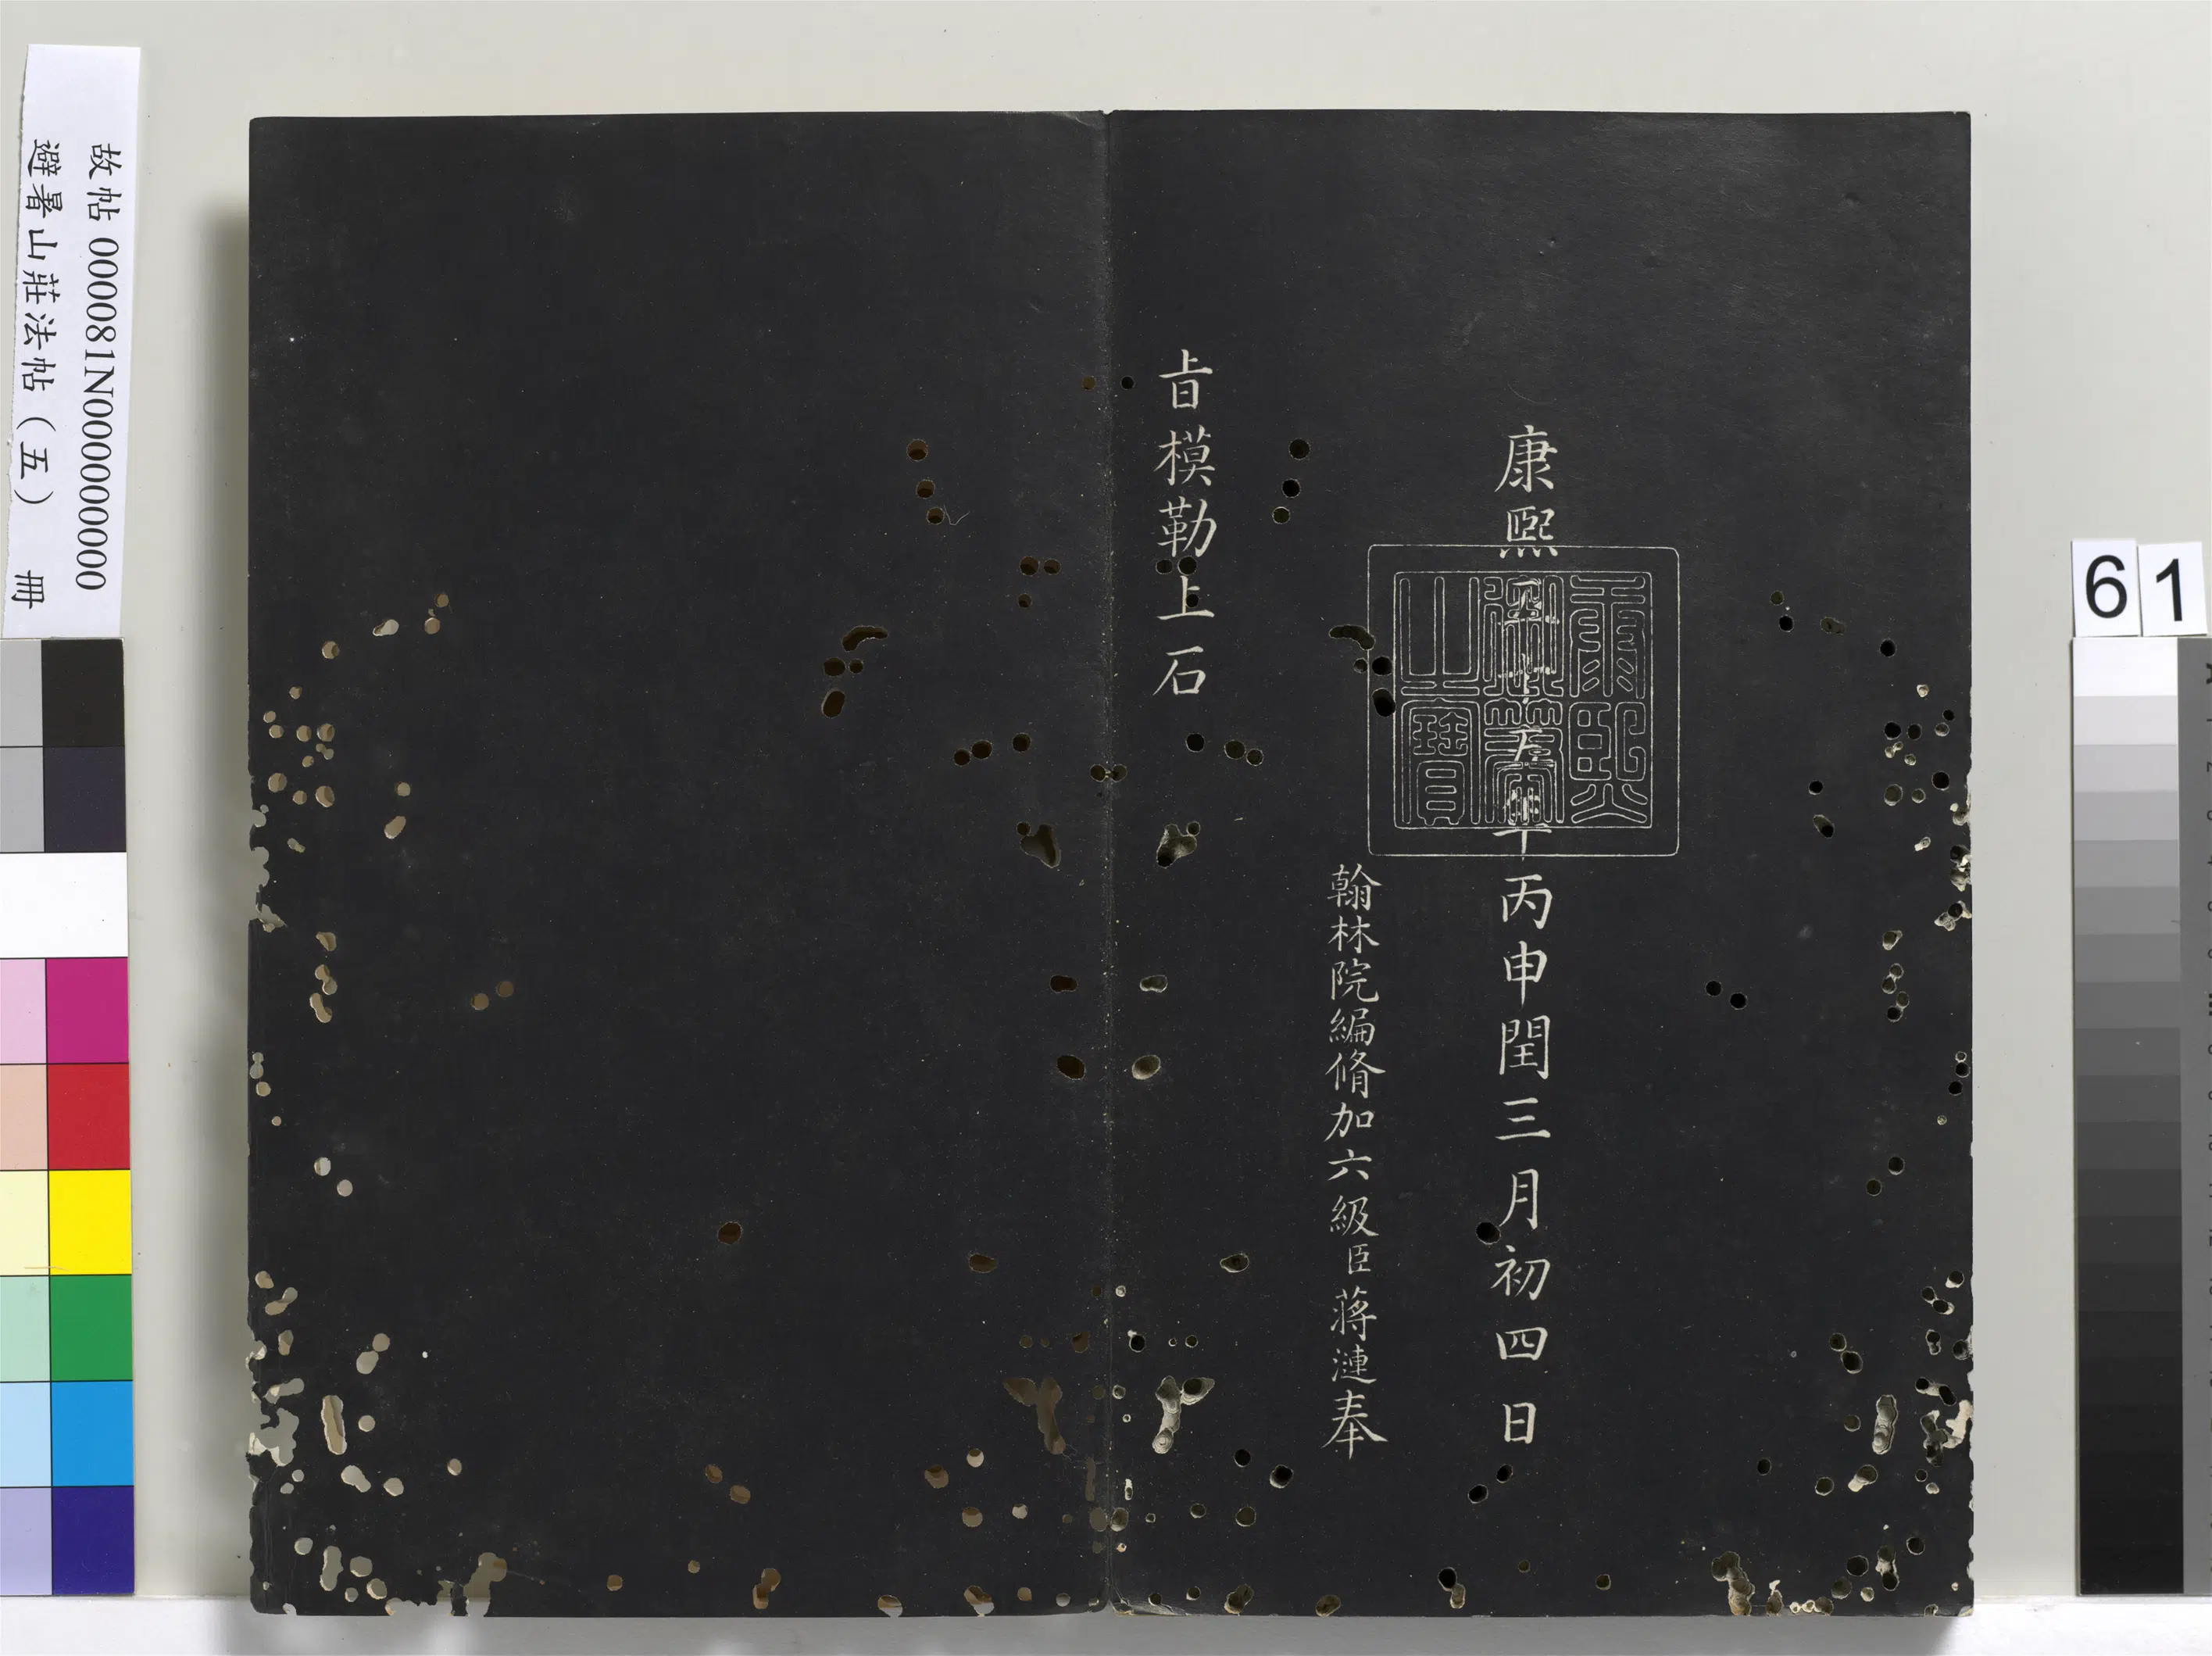 康熙五十五年丙申閏三月初四日
康熙御筆之寶
翰林院編脩加六級臣蔣漣奉
旨模勒上石
故帖 000081N000000000
避暑山莊法帖（五） 冊
61